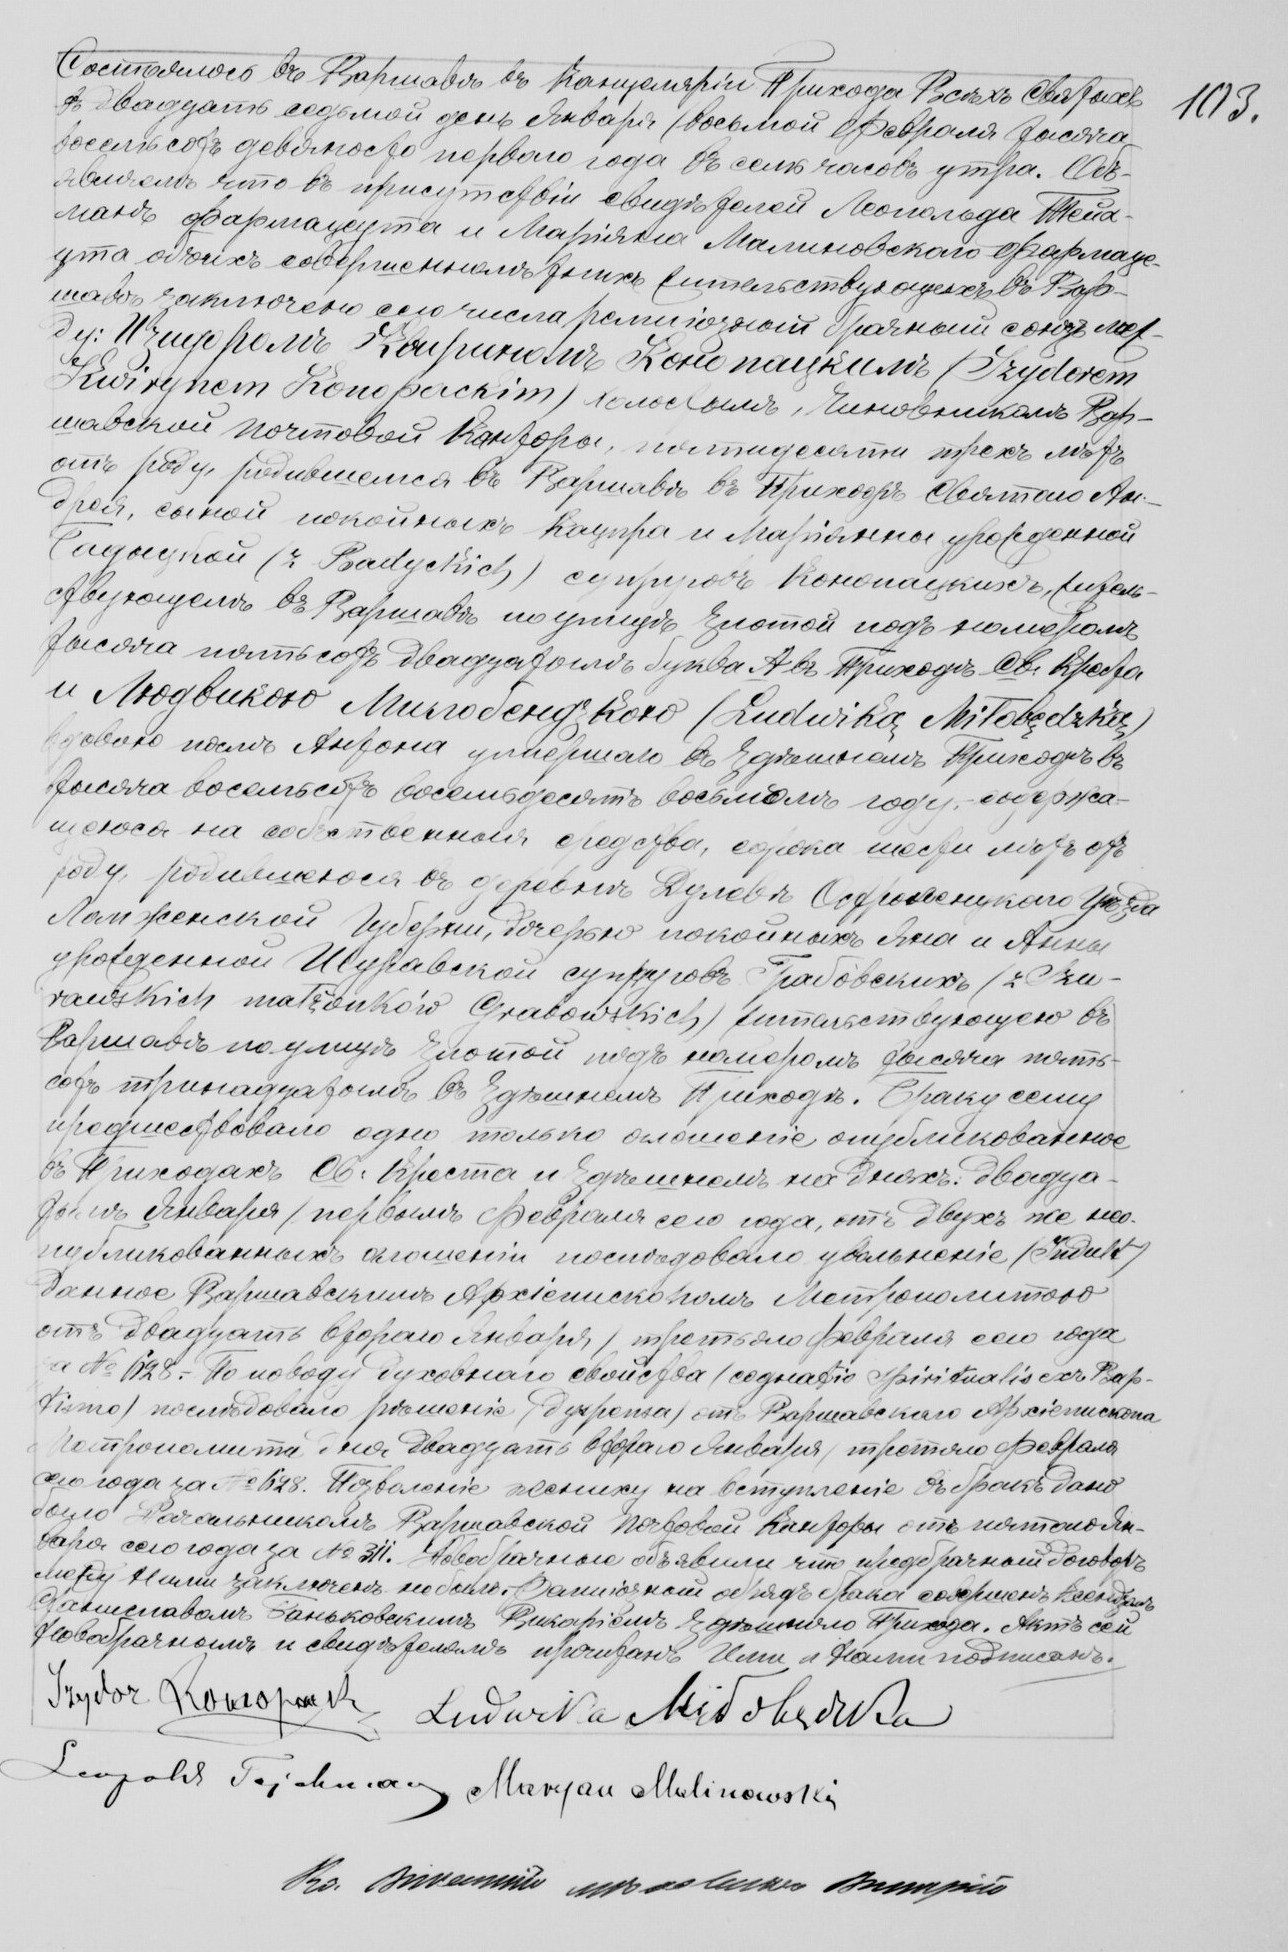 103.
Состоялось въ Варшавѣ въ Канцеляріи Прихода Всѣхъ Святыхъ
въ двадцать седьмой день Января (восьмой Февраля тысяча
восемьсотъ девяносто перваго года въ семь часовъ утра. Объ-
являемъ что въ присутствіи свидѣтелей Леопольда Тейх-
манъ фармацеута и Маріяна Малиновскаго фармаце-
ута обоихъ совершеннолѣтныхъ жительствующихъ въ Вар-
шавѣ заключено сего числа религіозный брачный союзъ меж-
ду: Изидоромъ Квириномъ Конопацкимъ (Izydorem
Kwirynem Konopackim) холостымъ, чиновникомъ Вар-
шавской почтовой Конторы, пятидесяти трехъ лѣтъ
отъ роду, родившемся въ Варшавѣ въ Приходѣ Святаго Ан-
дрея, сыном покойныхъ Кацпра и Маріянны урожденной
Радыцкой (z Radyckich) супруговъ Конопацкихъ, житель-
ствующемъ въ Варшавѣ по улицѣ Злотой подъ номеромъ
тысяча пятьсотъ двадцатымъ буква А въ Приходѣ Св. Креста
и Людвикою Милобендзкою (Ludwiką Miłobędzką)
вдовою послѣ Антона умершаго въ здѣшнемъ Приходѣ въ
тысяча восемьсотъ восемьдесятъ восьмомъ году, содержа-
щеюся на собственныя средства, сорока шести лѣтъ отъ
роду, родившеюся въ деревнѣ Дулевѣ Остроленцкаго Уѣзда
Ломженской Губерніи, дочерью покойныхъ Яна и Анны
урожденной Шуравской супруговъ Грабовскихъ (z Szu-
rawskich małżonków Grabowskich) жительствующею въ
Варшавѣ по улицѣ Злотой подъ номеромъ тысяча пять-
сотъ тринадцатымъ въ здѣшнемъ Приходѣ. Браку сему
предшествовало одно только оглошеніе опубликованное
въ Приходахъ Св. Креста и здѣшнемъ на дняхъ: двадца-
тымъ Января (первымъ Февраля сего года, отъ двухъ же нео-
публикованныхъ оглошеніи послѣдовало увольненіе (Indult)
данное Варшавскимъ Архіепископомъ Метрополитою
отъ двадцать втораго Января (третьяго Февраля сего года
за № 628. По поводу духовнаго свойства (cognatio spiritualis ex Bap-
tismo) послѣдовало рѣшеніе (диспенза) отъ Варшавскаго Архіепископа
Метрополита дня двадцать втораго Января (третьяго Февраля
сего года за № 628. Позволеніе жениху на вступленіе въ бракъ дано
было Начальникомъ Варшавской Почтовой Конторы отъ пятаго Ян-
варя сего года за № 311. Новобрачные объявили что предбрачный договоръ
между ними заключенъ не былъ. Религіозный обрядъ брака совершенъ Ксендзомъ
Станиславомъ Баньковскимъ Викаріемъ здѣшняго Прихода. Актъ сей
Новобрачнымъ и свидѣтелямъ прочитанъ Ими и Нами подписанъ.
Izydor Konopacki Ludwika Miłobędzka
Leopold Tejchman Maryan Malinowski
Кс.